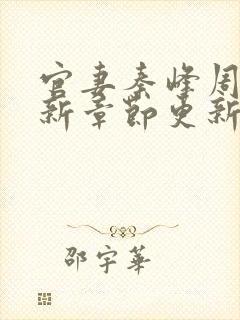 官妻秦峰周
新章节更新
邵宇華